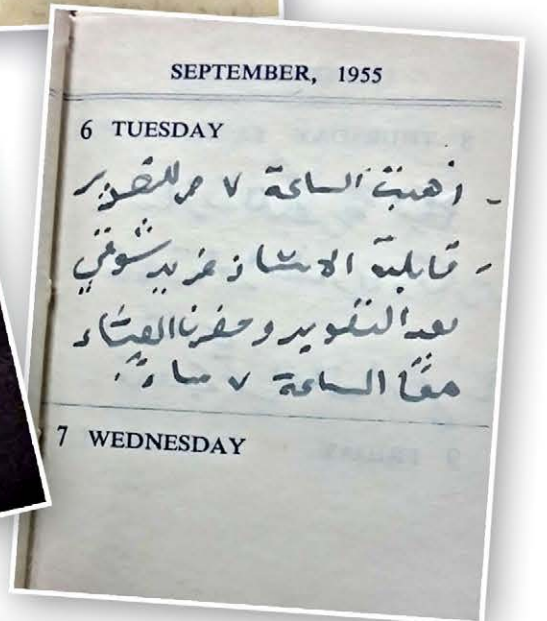 SEPTEMBER, 1955
6 TUESDAY
- ذهبت الساعة ٧ ص للتصوير
- قابلت الاستاذ فريد شوقي
بعد التصوير وحضرنا العشاء
معًا الساعة ٧ مساءً.
7 WEDNESDAY